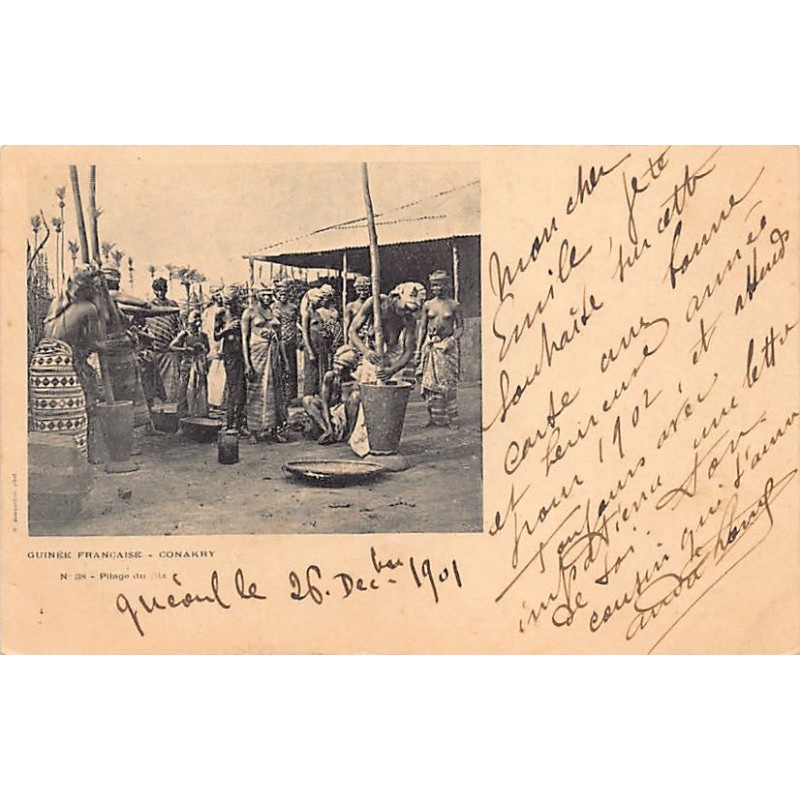 GUINÉE FRANÇAISE - CONAKRY
N° 38 - Pilage du
Guéoul le 26. Decbre 1901
Mon cher
Emile, je te
souhaite sur cette
carte une bonne
et heureuse année
pour 1902, et attends
toujours avec
impatience une lettre
de toi. Ton
cousin qui t'aime